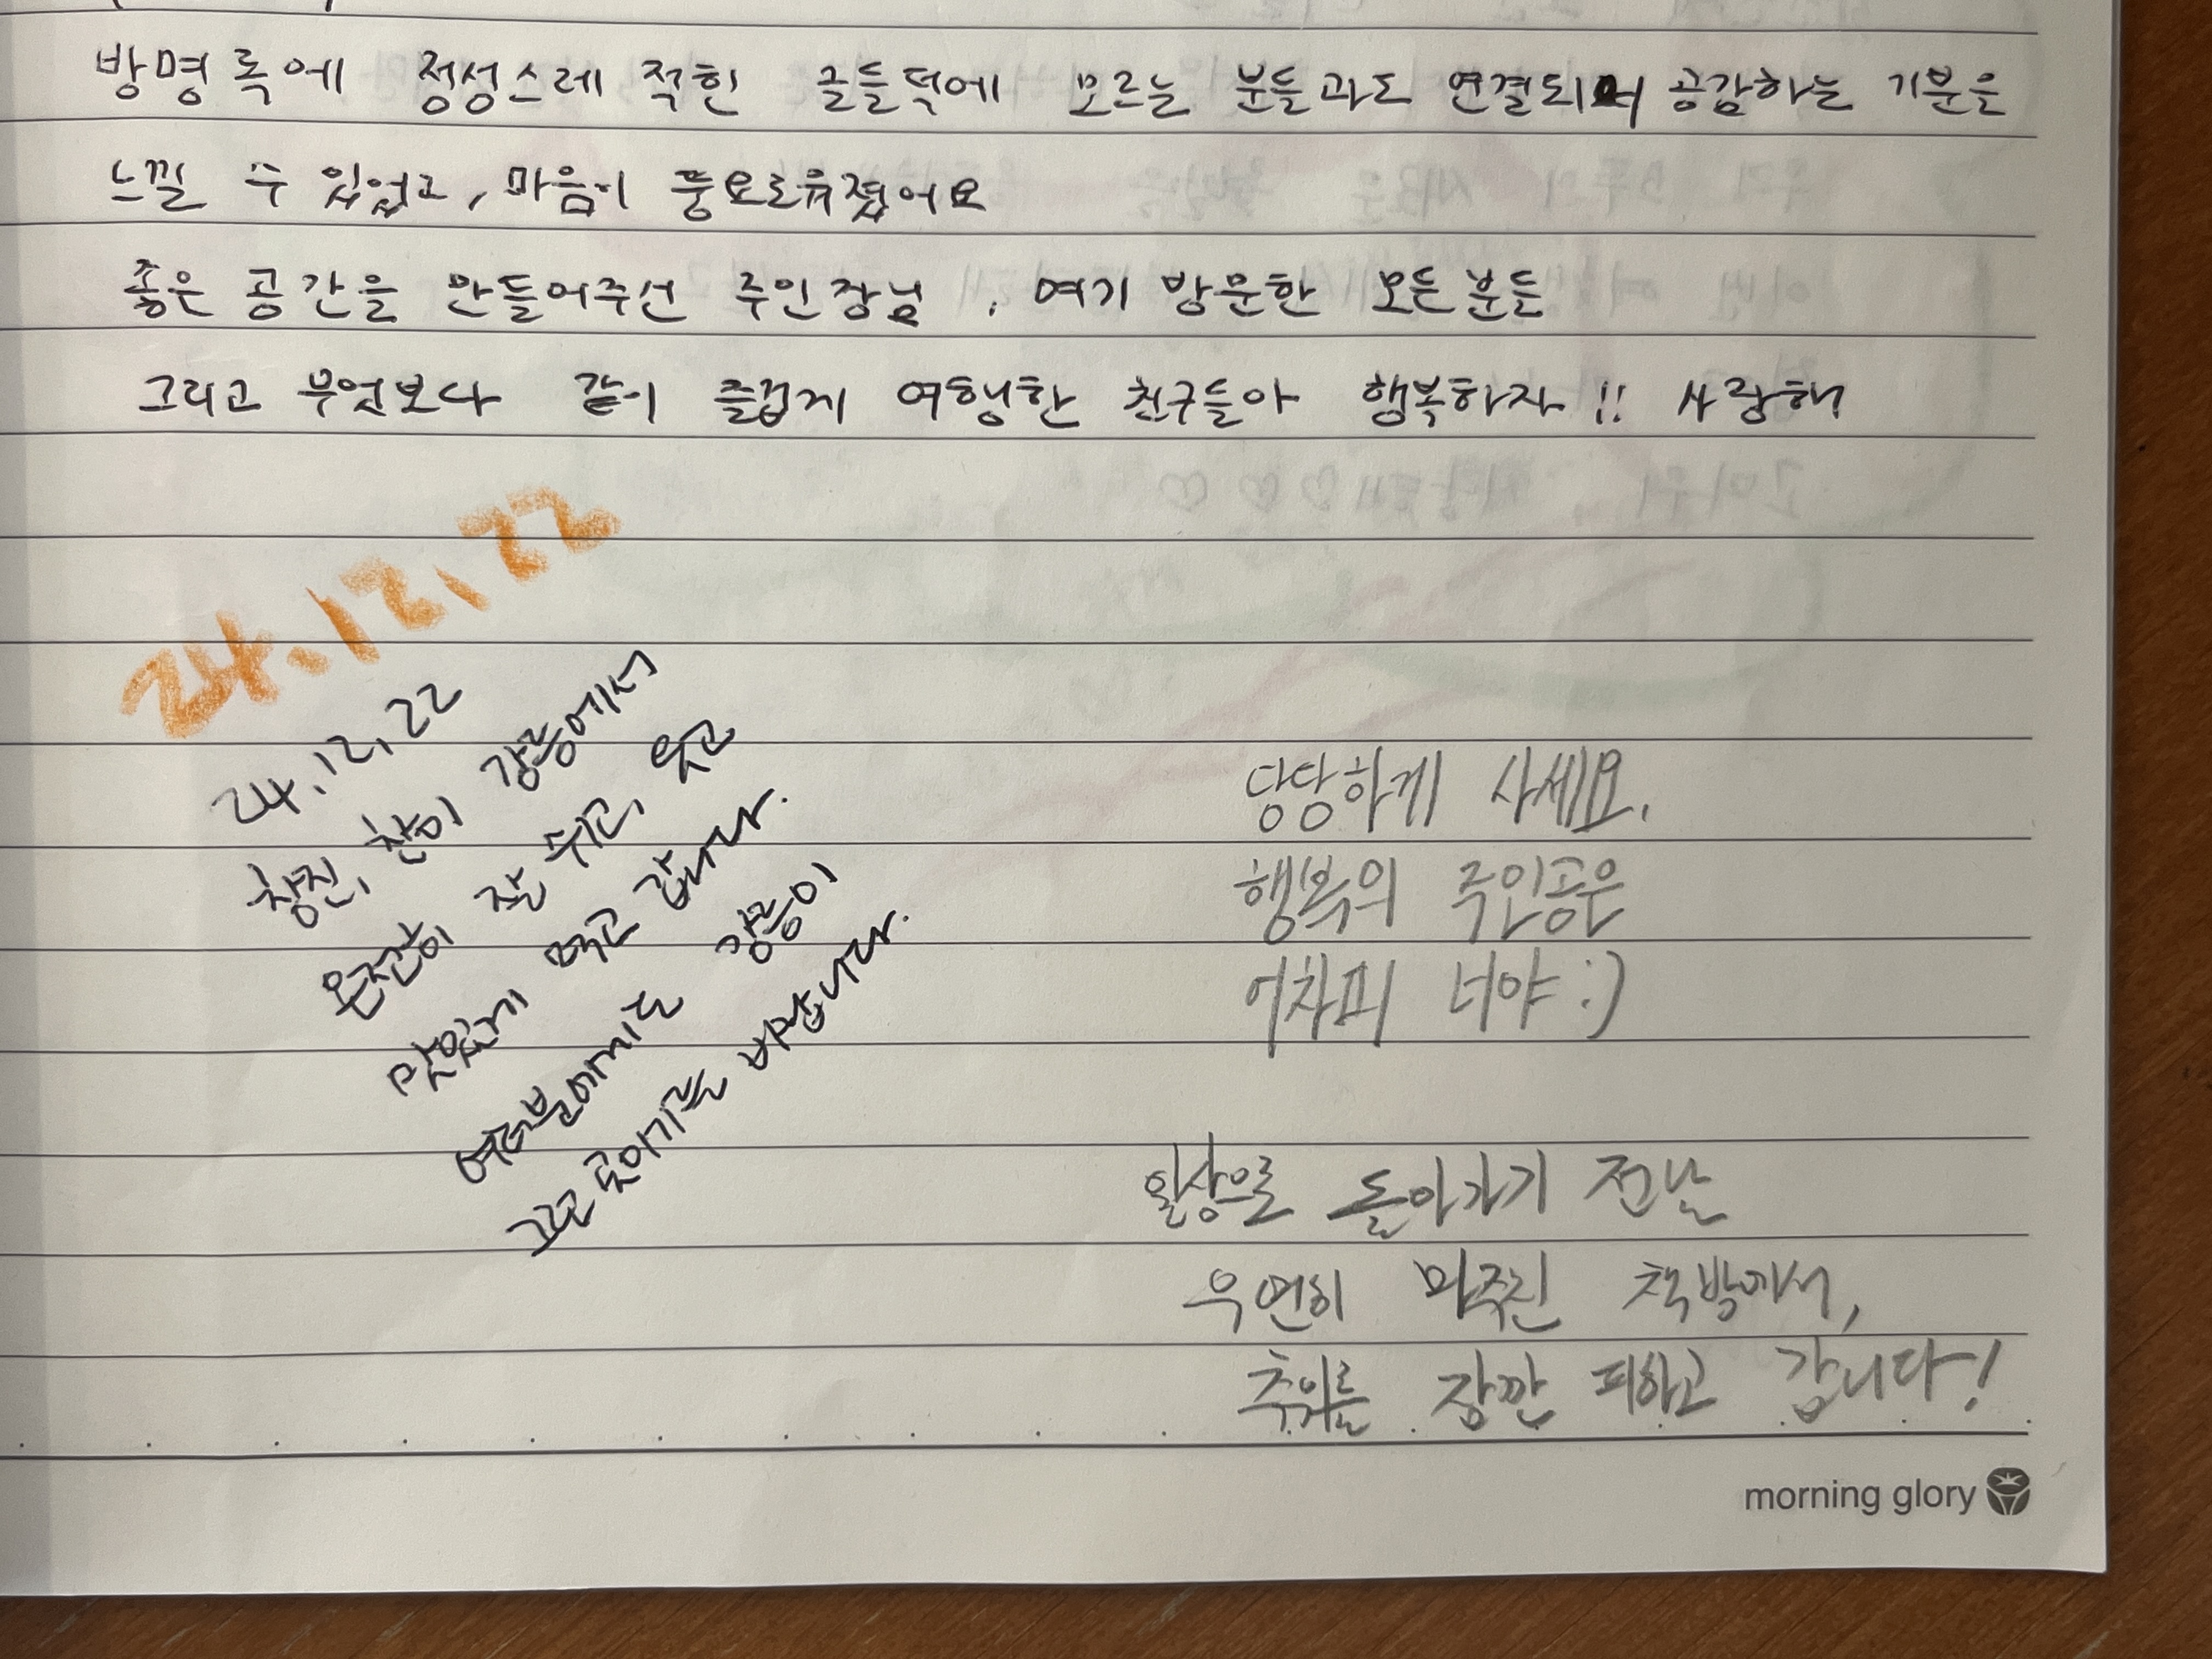 방명록에 정성스레 적힌 글들덕에 모르는 분들과도 연결되어 공감하는 기분은
느낄 수 있었고, 마음이 풍요로워졌어요
좋은 공간을 만들어주신 주인장님, 여기 방문한 모든분들
그리고 무엇보다 같이 즐겁게 여행한 친구들아 행복하자!! 사랑해
24.12.22
24.12.22
창진, 찬이 강릉에서
온전히 잘 쉬고, 웃고
맛있게 먹고 갑니다.
여러분에게도 강릉이
그런 곳이기를 바랍니다.
당당하게 사세요.
행복의 주인공은
어차피 너야 :)
일상으로 돌아가기 전날
우연히 마주친 책방에서,
추위를 잠깐 피하고 갑니다!
morning glory